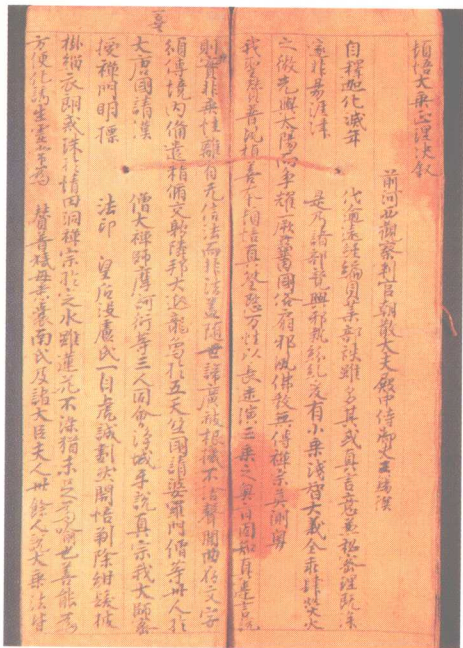 頓悟大乘正理決敘
前河西觀察判官朝散大夫殿中侍御史王錫撰
自釋迦化滅年 代逾遠經編貝葉部帙雖多其或真言意兼秘密理既深
邃非易涯津 是乃諸部競興邪執紛乱爰有小乘淺智大義全乖肆螢火
之微光與太陽而爭耀厥茲蕃國俗扇邪風佛教無傳禪宗莫測粵
我聖贊普夙植善本頓悟真筌愍万性以長迷演三乘之奧旨固知真違言說
則實非乘性離有無信法而非法蓋隨世諦廣被根機不捨聲聞曲存文字
頒傳境內備遣精脩交聘隣邦大延龍象於五天竺國請婆羅門僧等卅人於
大唐國請漢 僧大禪師摩訶衍等三人同會淨城樂說真宗我大師密
授禪門明標 法印 皇后沒盧氏一自虔誠劃然開悟剃除紺髮披
掛緇衣朗戒珠於情田洞禪宗於定水雖蓮花不染猶未足為喻也善能為
方便化誘生靈常為 贊普姨母悉囊南氏及諸大臣夫人卅餘人說大乘法皆